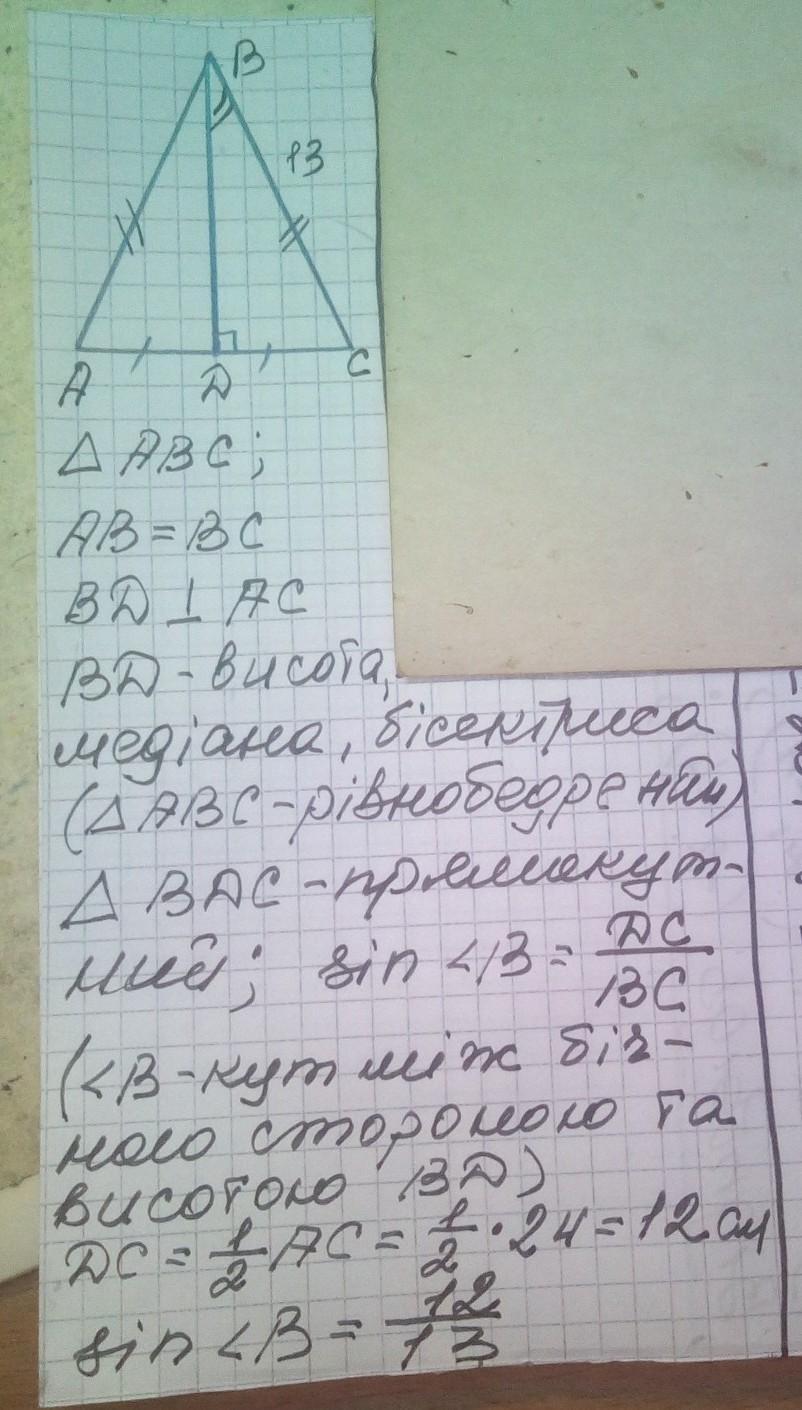 B
13
A D C
△ ABC;
AB = BC
BD ⊥ AC
BD - висота,
медіана, бісектриса
(△ ABC - рівнобедрений)
△ BDC - прямокут-
ний; sin <B = DC/BC
(<B - кут між біч-
ною стороною та
висотою BD)
DC = 1/2 AC = 1/2 · 24 = 12 см
sin <B = 12/13